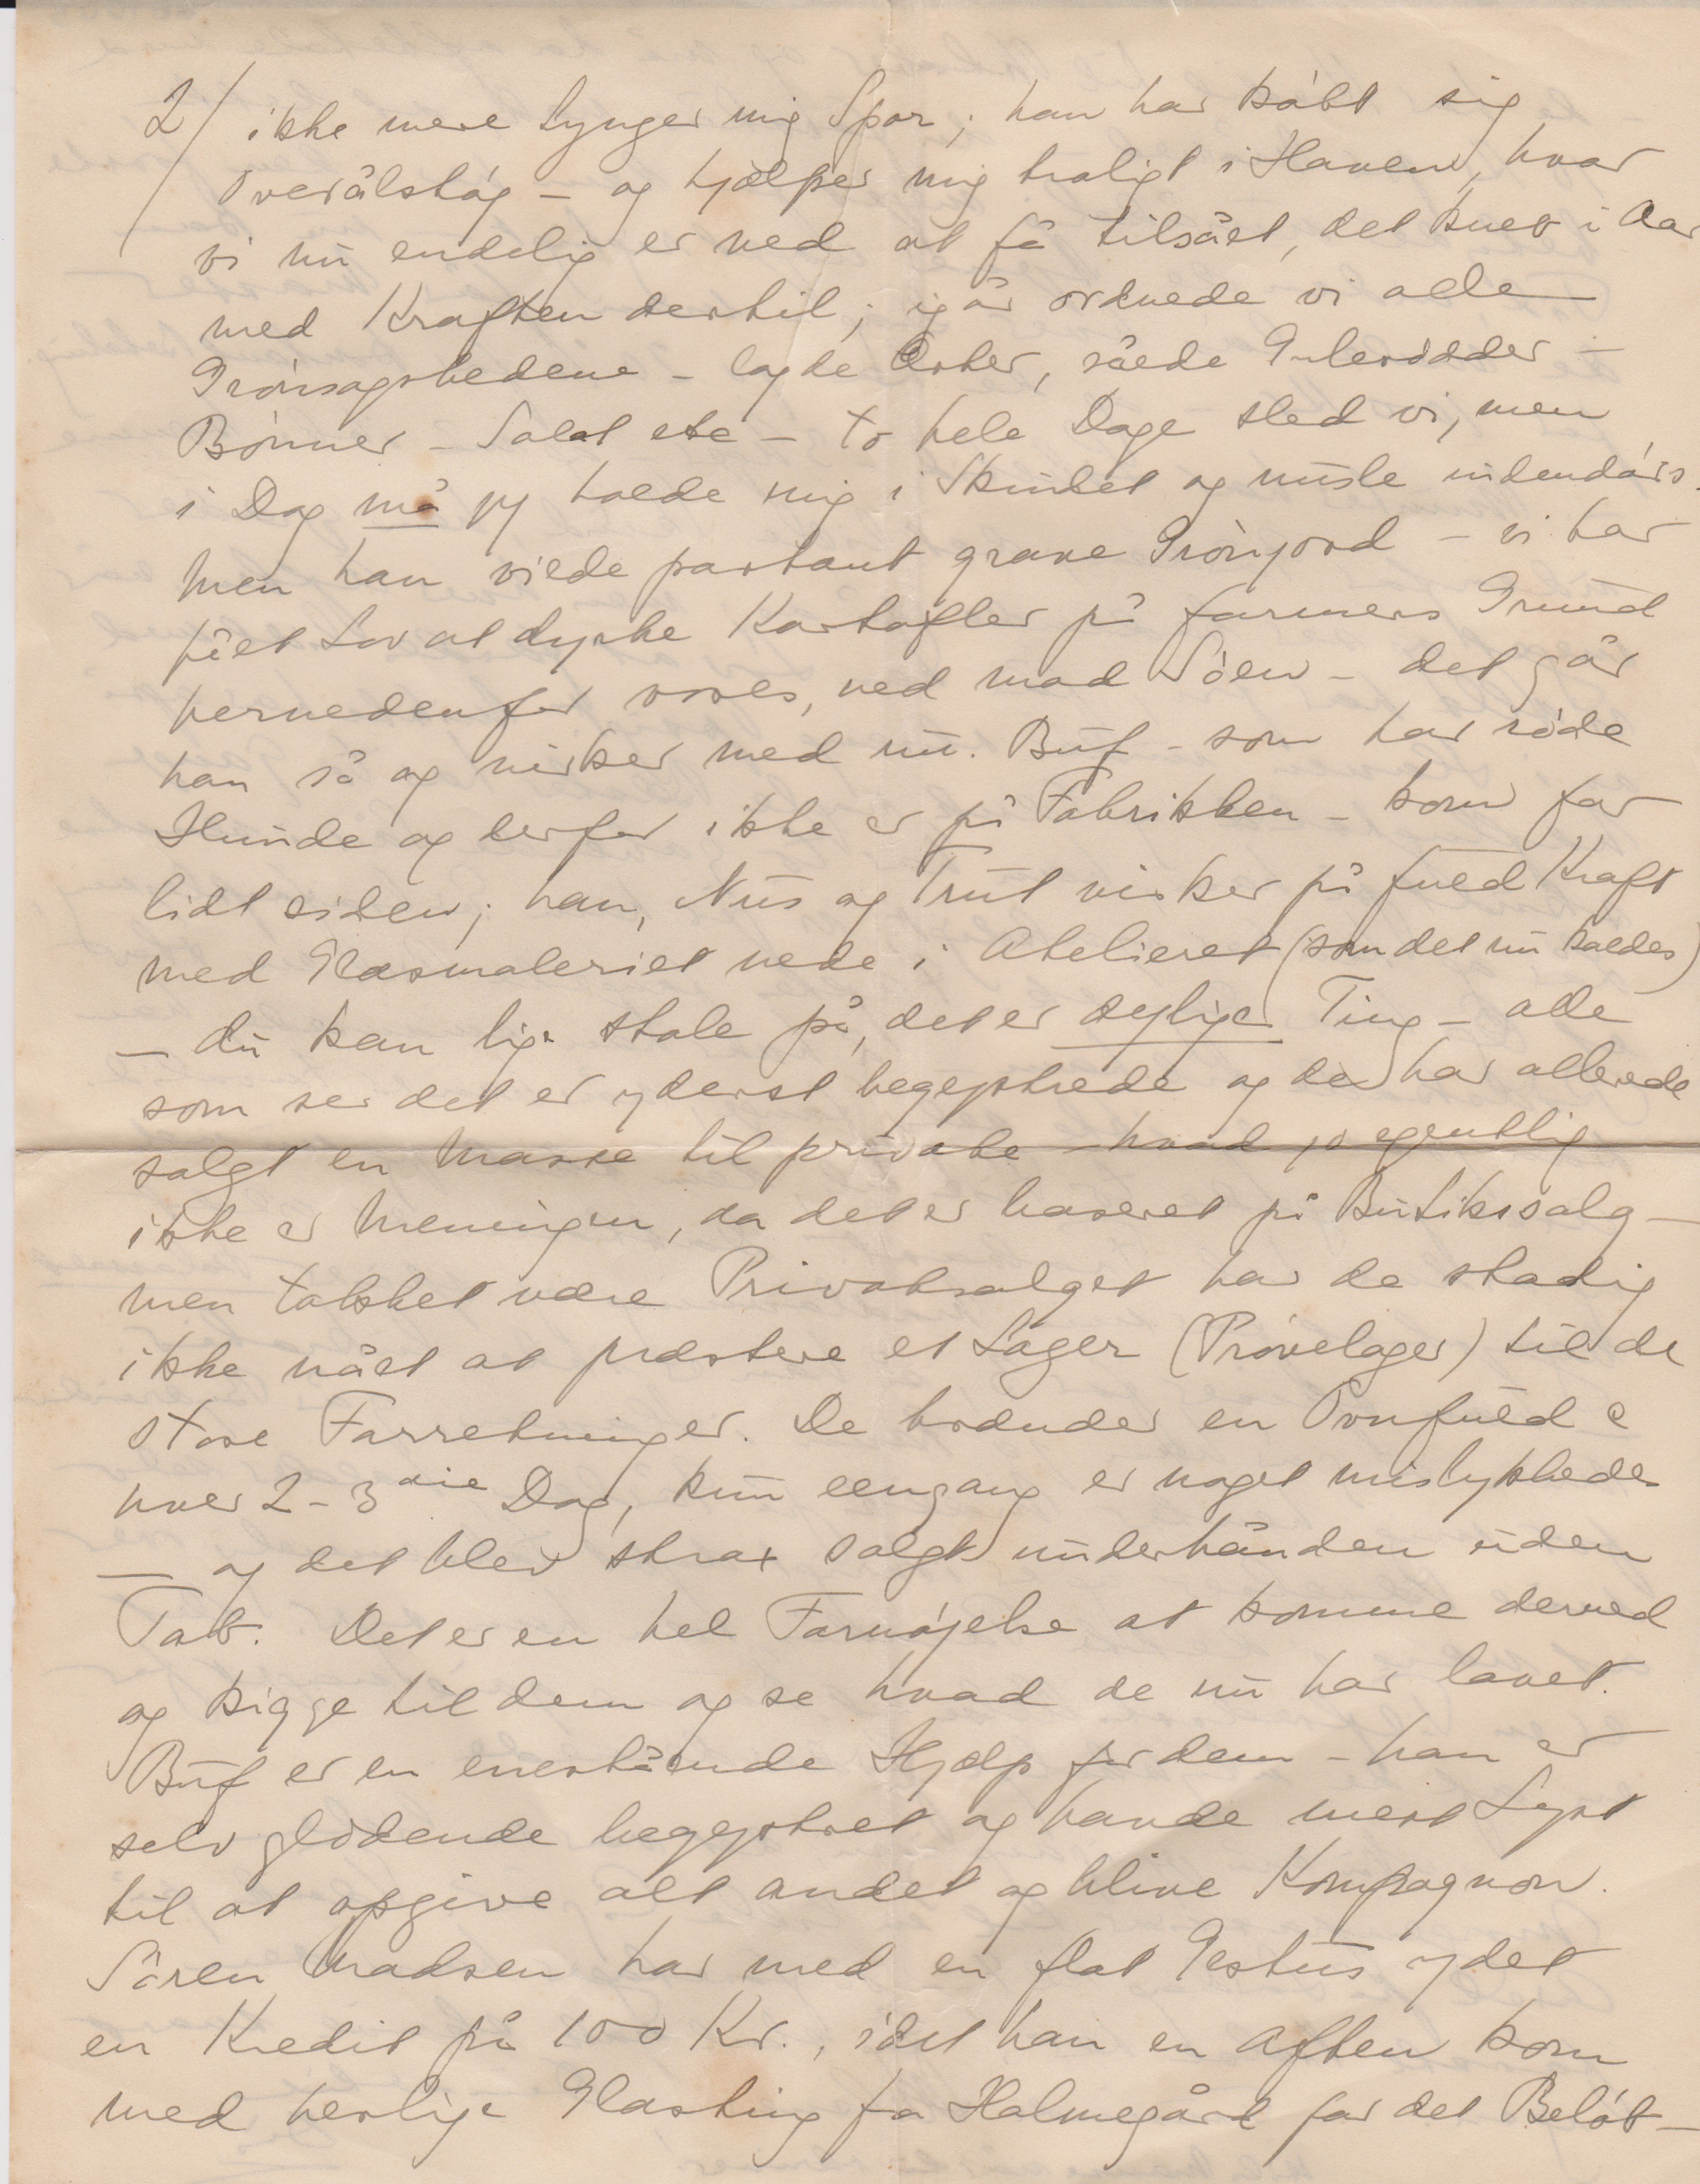 2/ ikke mere tynger mig Spor; han har købt sig
Overålstøj – og hjælper mig troligt i Haven, hvor
vi nu endelig er ved at få tilsået, det kneb i Aar
med Kraften dertil; igår ordnede vi alle
Grønsagsbedene – lagde Ærter, såede Gulerødder –
Bønner – Salat etc – to hele Dage sled vi, men
i Dag må jeg holde mig i Skindet og nusle indendørs.
Men han vilde partout grave Grønjord – vi har
fået Lov at dyrke Kartofler på farmers Grund
hernedenfor vores, ned mod Søen – det går
han så og virker med nu. Buf – som har røde
Hunde og derfor ikke er på Fabrikken – kom for
lidt siden; han, Nus og Trut virker på fuld Kraft
med Glasmaleriet nede i Atelieret (som det nu kaldes)
– du kan lige stole på, det er dejlige Ting – alle
som ser det er yderst begejstrede og de har allerede
solgt en Masse til private – hvad jo egentlig
ikke er Meningen, da det er baseret på Butikssalg –
men takket være Privatsalget har de stadig
ikke nået at præstere et Lager (Prøvelager) til de
store Forretninger. De brænder en Ovnfuld
hver 2-3die Dag, kun eengang er noget mislykkedes
– og det blev strax solgt underhånden uden
Tab. Det er en hel Fornøjelse at komme derned
og kigge til dem og se hvad de nu har lavet.
Buf er en enestående Hjælp for dem – han er
selv glødende begejstret og havde mest Lyst
til at opgive alt andet og blive Kompagnon.
Sören Madsen har med en flot Gestus ydet
en Kredit på 100 Kr., idet han en Aften kom
med herlige Glasting fra Holmegård for det Beløb –